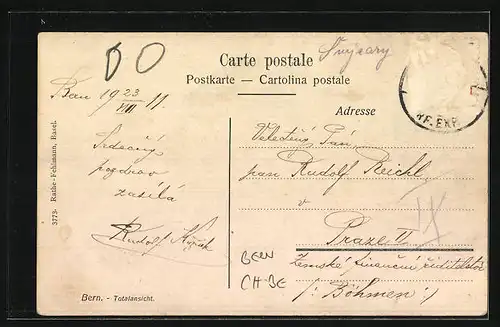 DO
Švýcary
Carte postale
Postkarte — Cartolina postale
Adresse
Bern 19 23/VIII 11.
Srdečný
pozdrav
zasílá
Rudolf
Veletěný Pán
pan Rudolf Reichl
v
Praze II
Zemské finanční ředitelství
/: Böhmen :/
II
BERN
CH-BE
BF. EXP.
3773. Rathe-Fehlmann, Basel.
Bern. - Totalansicht.